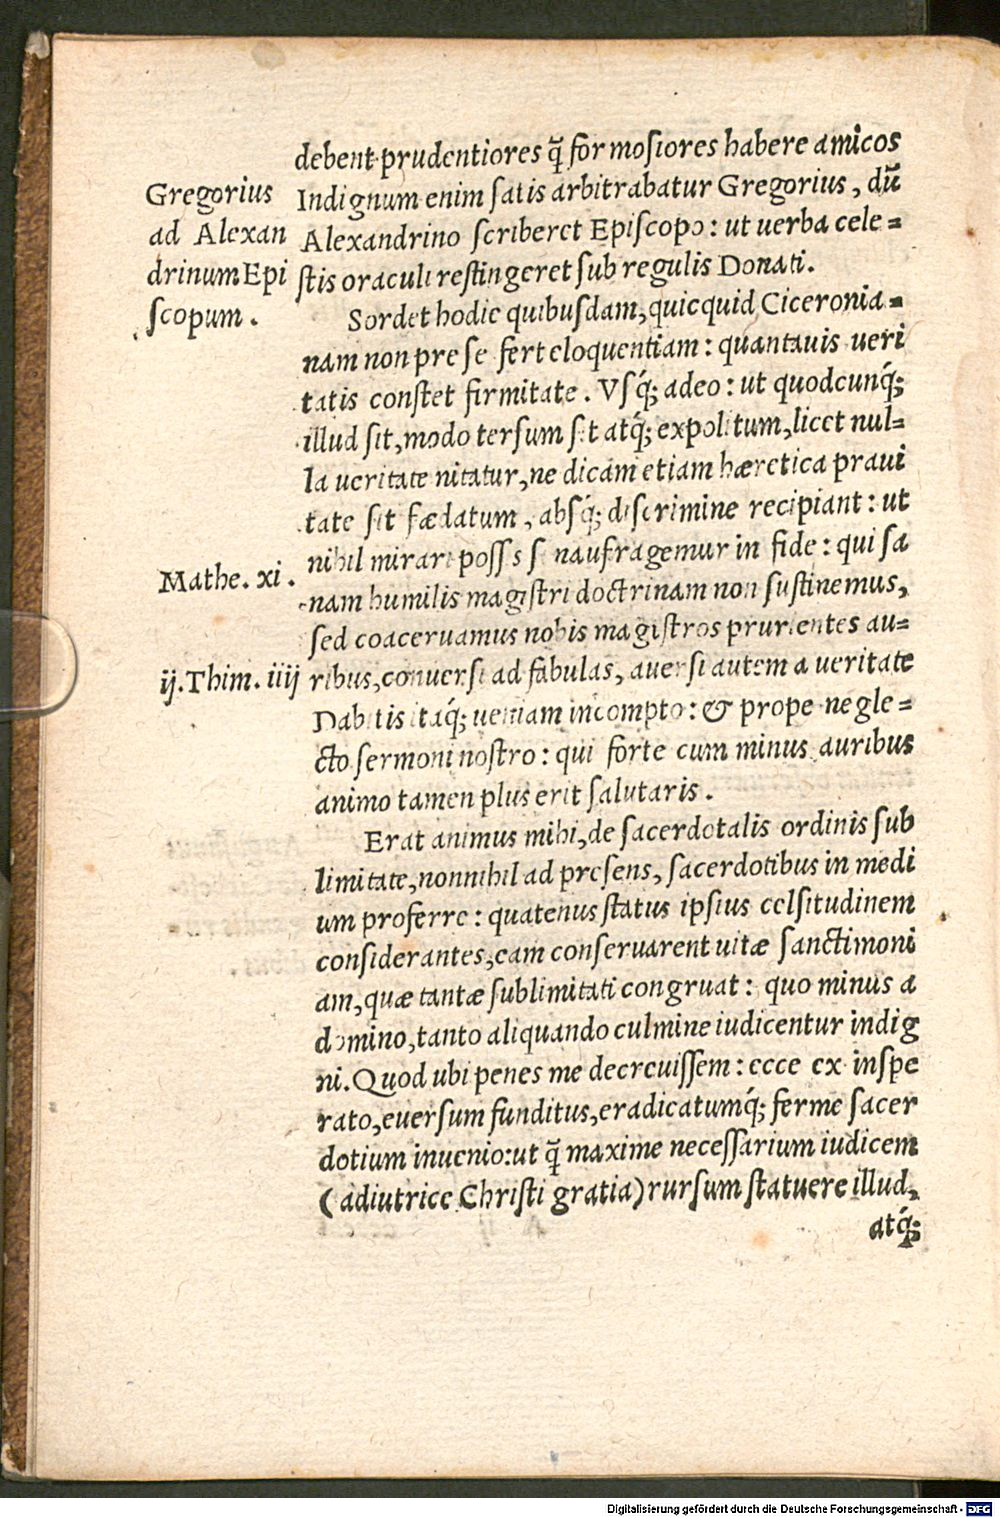 debent prudentiores q̃ formosiores habere amicos
Gregorius
ad Alexan
drinum Epi
scopum.
Indignum enim satis arbitrabatur Gregorius, dũ
Alexandrino scriberet Episcopo: ut uerba cele=
stis oraculi restingeret sub regulis Donati.
Sordet hodie quibusdam, quicquid Ciceronia=
nam non pre se fert eloquentiam: quantauis ueri
tatis constet firmitate. Vsq́; adeo: ut quodcunq́;
illud sit, modo tersum sit atq́; expolitum, licet nul=
la ueritate nitatur, ne dicam etiam hæretica praui
tate sit fædatum, absq́; discrimine recipiant: ut
nihil mirari possis si naufragemur in fide: qui sa
Mathe. xi.
nam humilis magistri doctrinam non sustinemus,
sed coaceruamus nobis magistros prurientes au=
ij. Thim. iiij
ribus, conuersi ad fabulas, auersi autem a ueritate
Dabitis itaq́; ueniam incompto: & prope negle=
cto sermoni nostro: qui forte cum minus auribus
animo tamen plus erit salutaris.
Erat animus mihi, de sacerdotalis ordinis sub
limitate, nonnihil ad presens, sacerdotibus in medi
um proferre: quatenus status ipsius celsitudinem
considerantes, eam conseruarent uitæ sanctimoni
am, quæ tantæ sublimitati congruat: quo minus a
domino, tanto aliquando culmine iudicentur indig
ni. Quod ubi penes me decreuissem: ecce ex inspe
rato, euersum funditus, eradicatumq́; ferme sacer
dotium inuenio: ut q̃ maxime necessarium iudicem
(adiutrice Christi gratia) rursum statuere illud,
atq́;
Digitalisierung gefördert durch die Deutsche Forschungsgemeinschaft - DFG